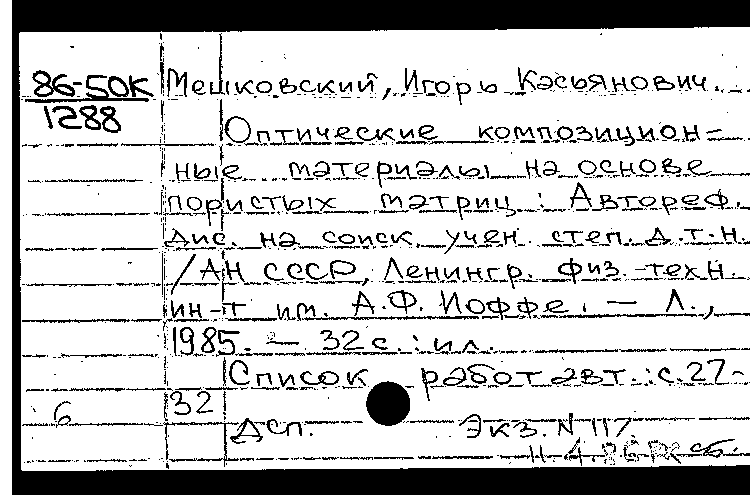 86-50К Мешковский, Игорь Касьянович.
1288
Оптические композицион=
ные материалы на основе
пористых матриц : Автореф.
дис. на соиск. учен. степ. д.т.н.
/АН СССР, Ленингр. физ.-техн.
ин-т им. А.Ф. Иоффе. — Л.,
1985. — 32 с. : ил.
Список работ авт.: с. 27-
6 32
Дсп. Экз. N 117